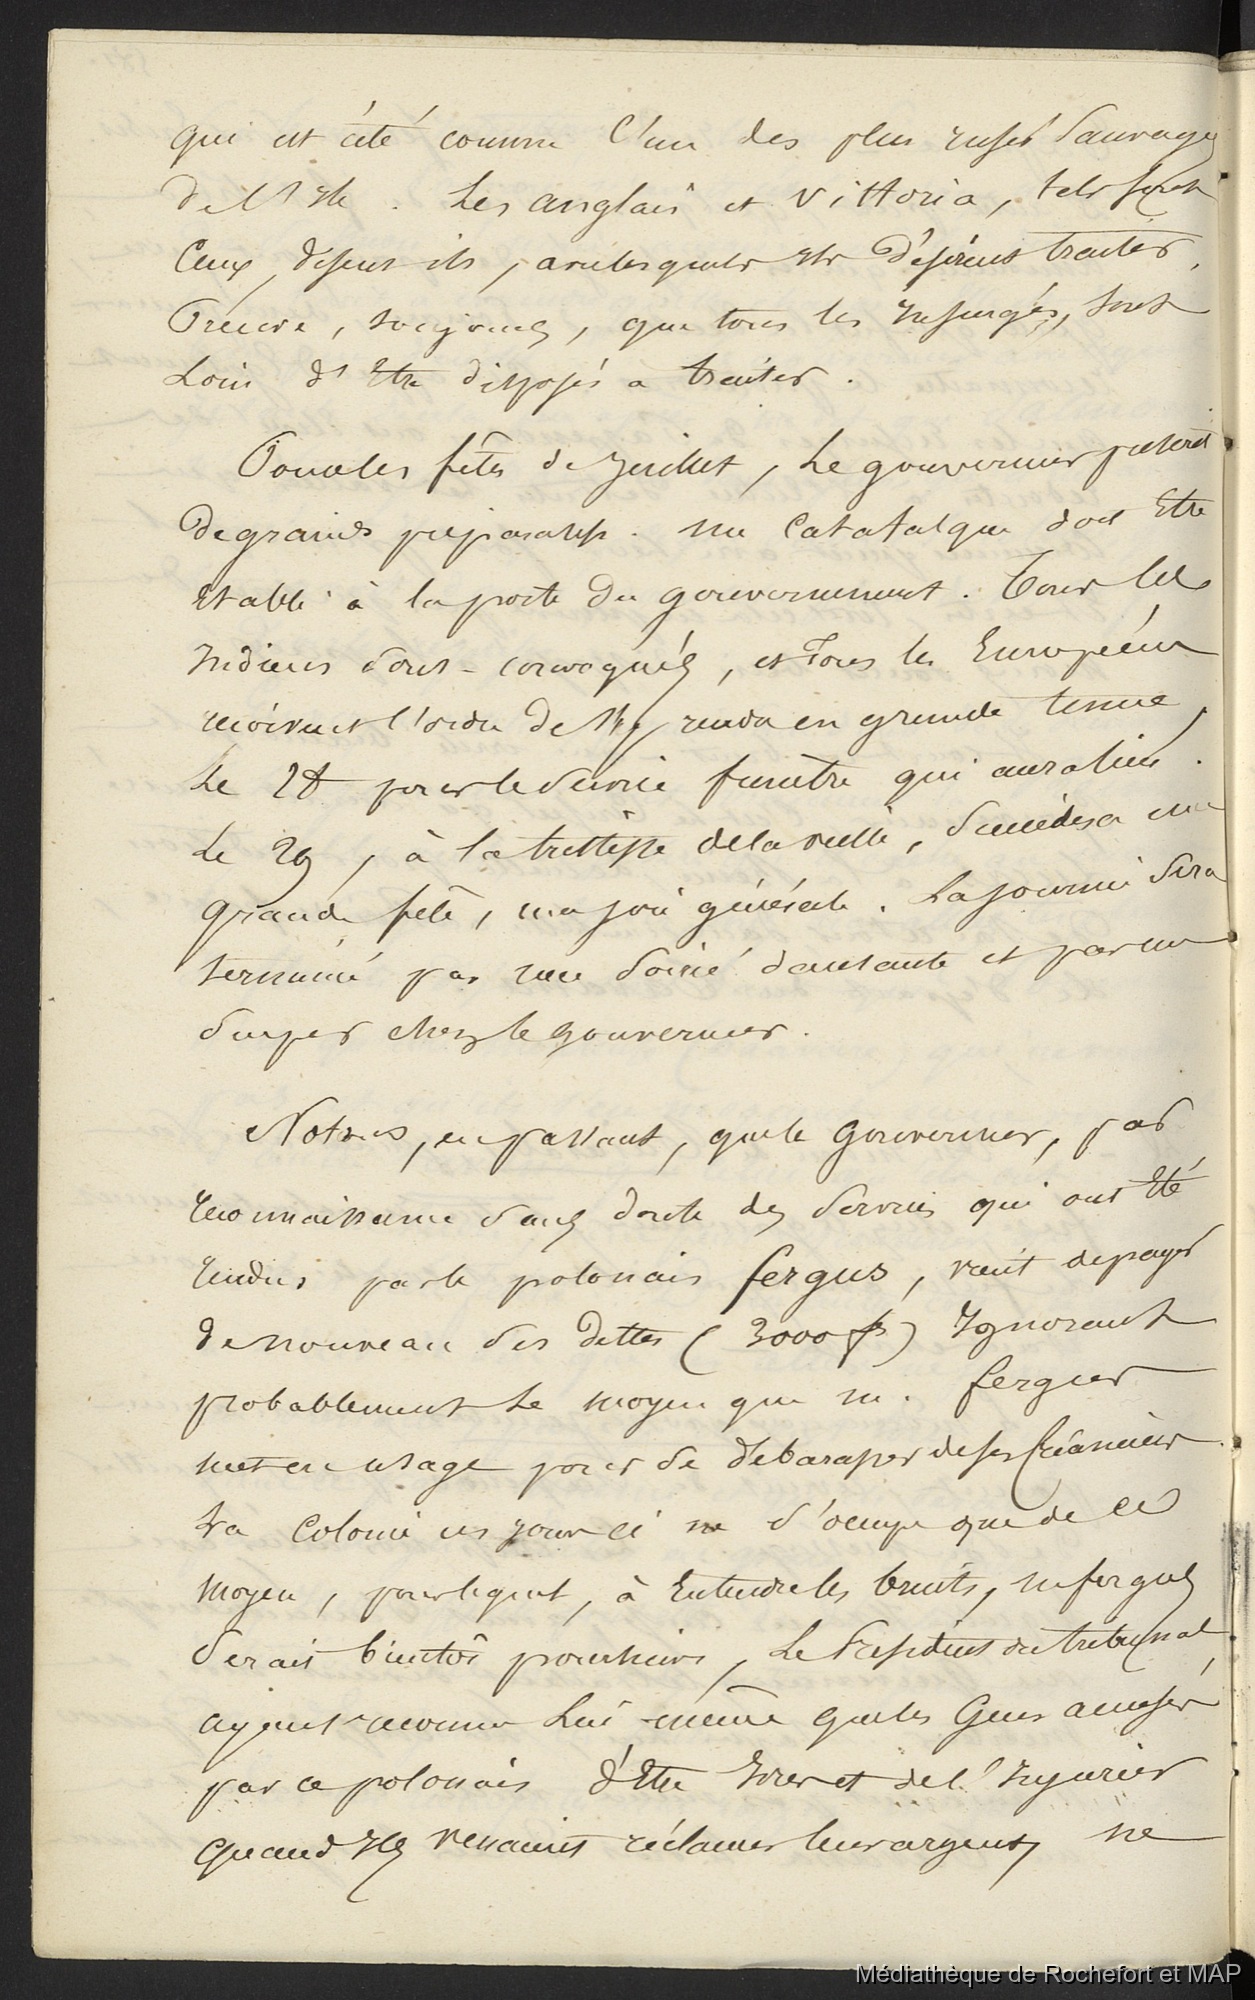 qui est cité comme l'un des plus rusés sauvages
de l'Ile. Les anglais et Vittoria, tels sont
Ceux, disent ils, avec lesquels Ils désirent traiter.
Preuve, toujours, que tous les Insurgés, sont
Loin d'Etre disposés a traiter.
Pour les fêtes de Juillet, Le gouverneur
De grands préparatifs. une Catafalque doit Etre
Etabli à la porte du gouvernement. Tous les
Indiens sont convoqués, et Tous les Européens
reçoivent l'ordre de s'y rendre en grande tenue,
Le 28 pour le Service funèbre qui aura lieu.
Le 29, à la tristesse de la veille, Succèdera une
grande fête, une joie générale. La journée Sera
terminée par une Soirée dansante et par un
Souper chez le gouverneur.
Notons, en passant, que le Gouverneur, par
reconnaissance sans doute des Services qui ont Eté
rendus par le polonais fergus, vient de payer
de nouveau ses dettes (3000 f) Ignorant
probablement Le moyen que m. fergus
met en usage pour se débarasser de ses Créanciers.
La Colonie ces jours ci ne s'occupe que de ce
moyen, pour lequel, à Entendre les bruits, m fergus
Serait bientôt poursuivi, Le Président du tribunal,
ayant reconnu Lui même que les Gens accusés
par ce polonais d'Etre Ivres et de l'Injurier
quand Ils venaient réclamer leur argent, ne
Médiathèque de Rochefort et MAP